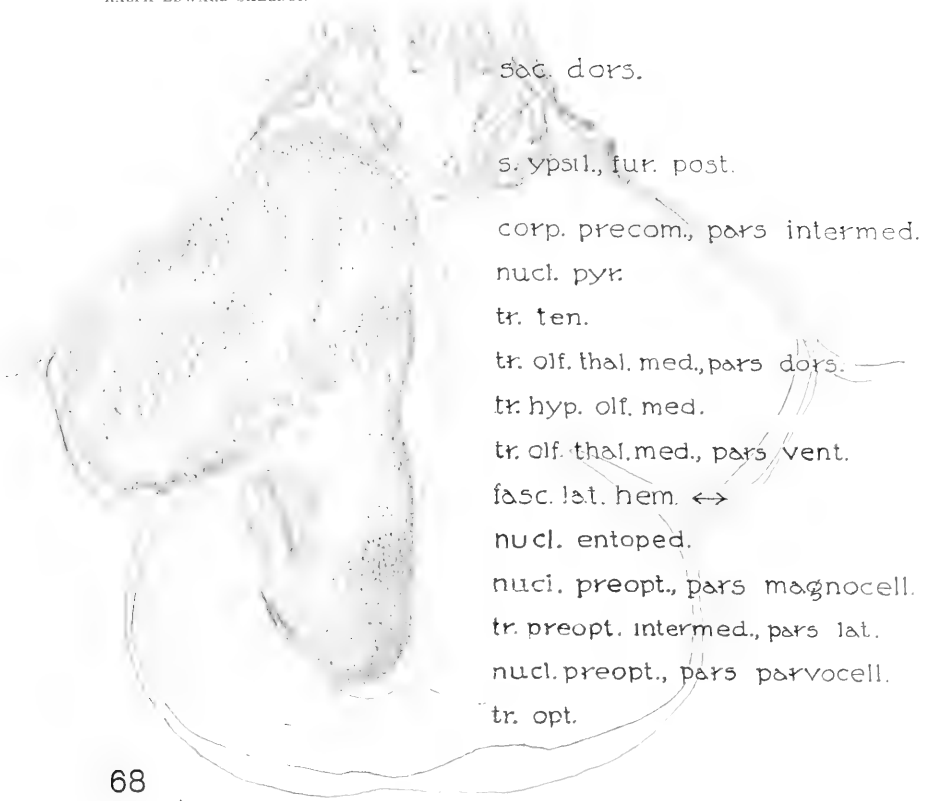 sac. dors.
s. ypsil., fur. post.
corp. precom., pars intermed.
nucl. pyr.
tr. ten.
tr. olf. thal. med., pars dors.
tr. hyp. olf. med.
tr. olf. thal. med., pars vent.
fasc. lat. hem. ↔
nucl. entoped.
nucl. preopt., pars magnocell.
tr. preopt. intermed., pars lat.
nucl. preopt., pars parvocell.
tr. opt.
68